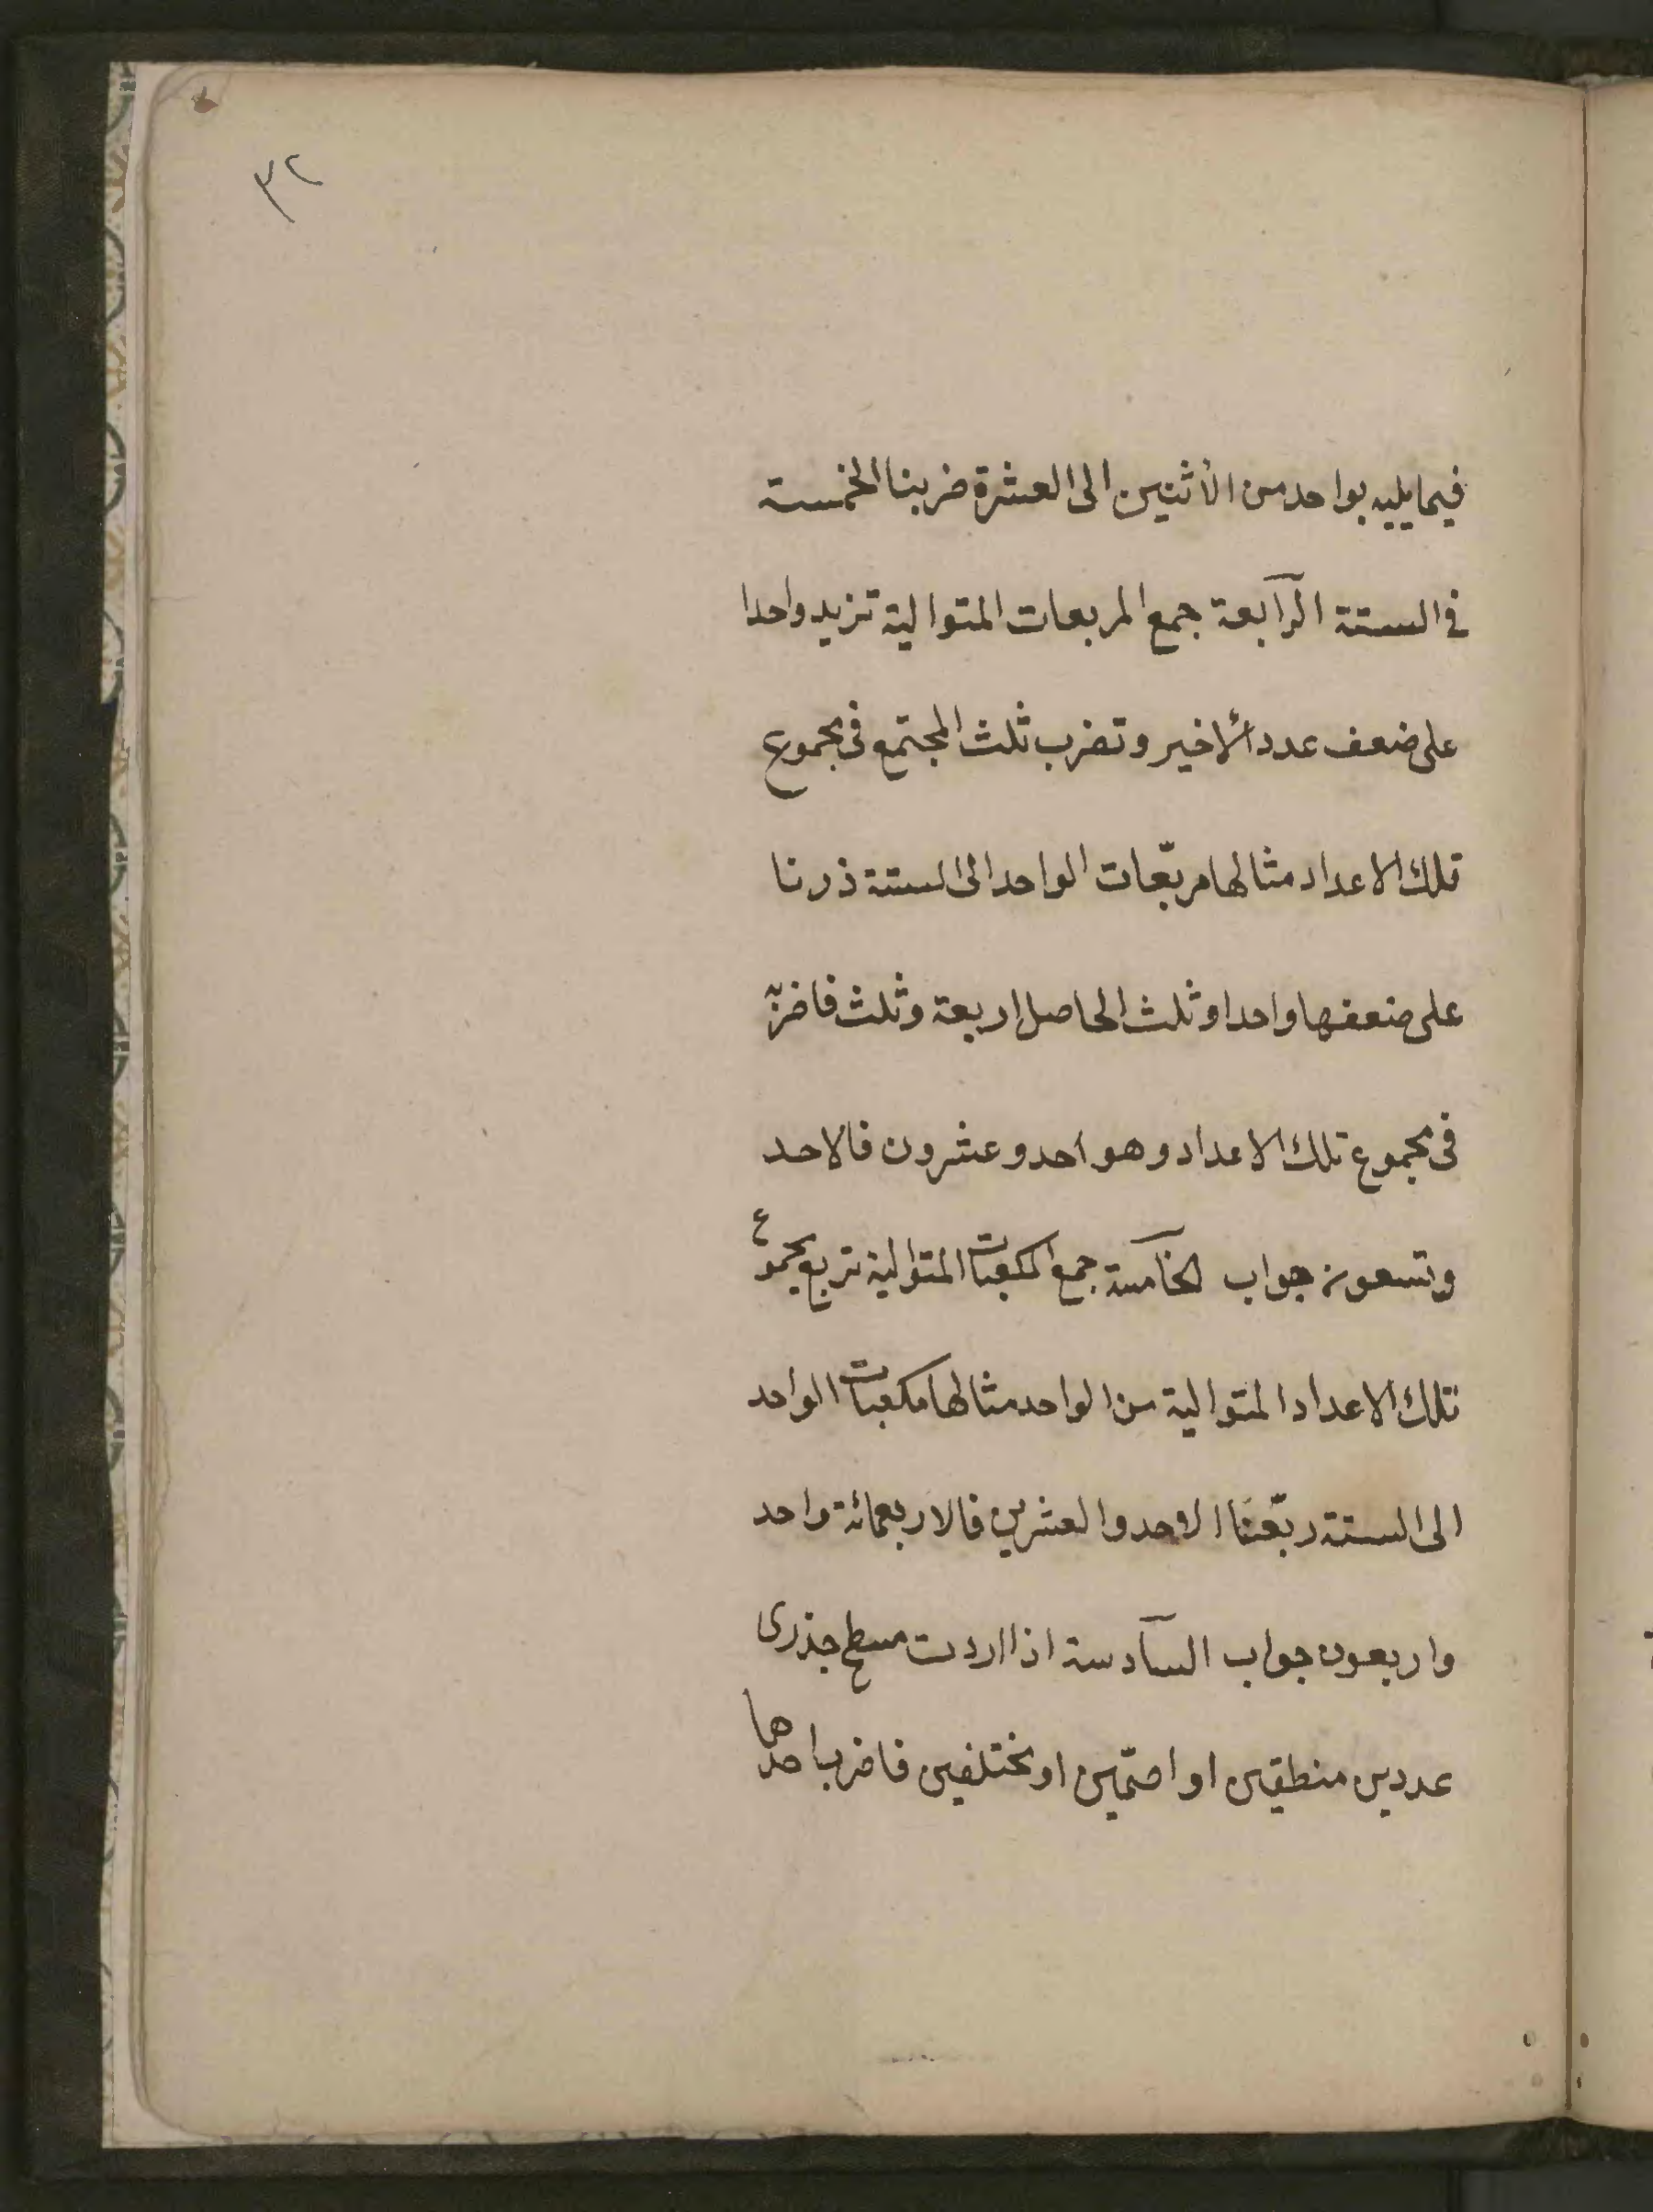 ٣٢
فيما يليه بواحد من الأثنين الى العشرة ضربنا الخمسة
فى الستة الرآبعة جمع المربعات المتوالية تزيد واحدا
على ضعف عدد الأخير وتضرب ثلث المجتمع فى مجموع
تلك الاعداد مثالها مربّعات الواحد الى الستة زدنا
على ضعفها واحدا وثلث الحاصل اربعة وثلث فاضربه
فى مجموع تلك الاعداد وهو احد وعشرون فالاحد
وتسعون جواب الخآمسة جمع المكعبات المتوالية تربع مجموع
تلك الاعداد المتوالية من الواحد مثالها مكعبات الواحد
الى الستة ربّعنا الاحد والعشرين فالاربعمائة واحد
واربعون جواب السآدسة اذا اردت مسطح جذرى
عددين منطقين او اصمّين او مختلفين فاضرب احدهما